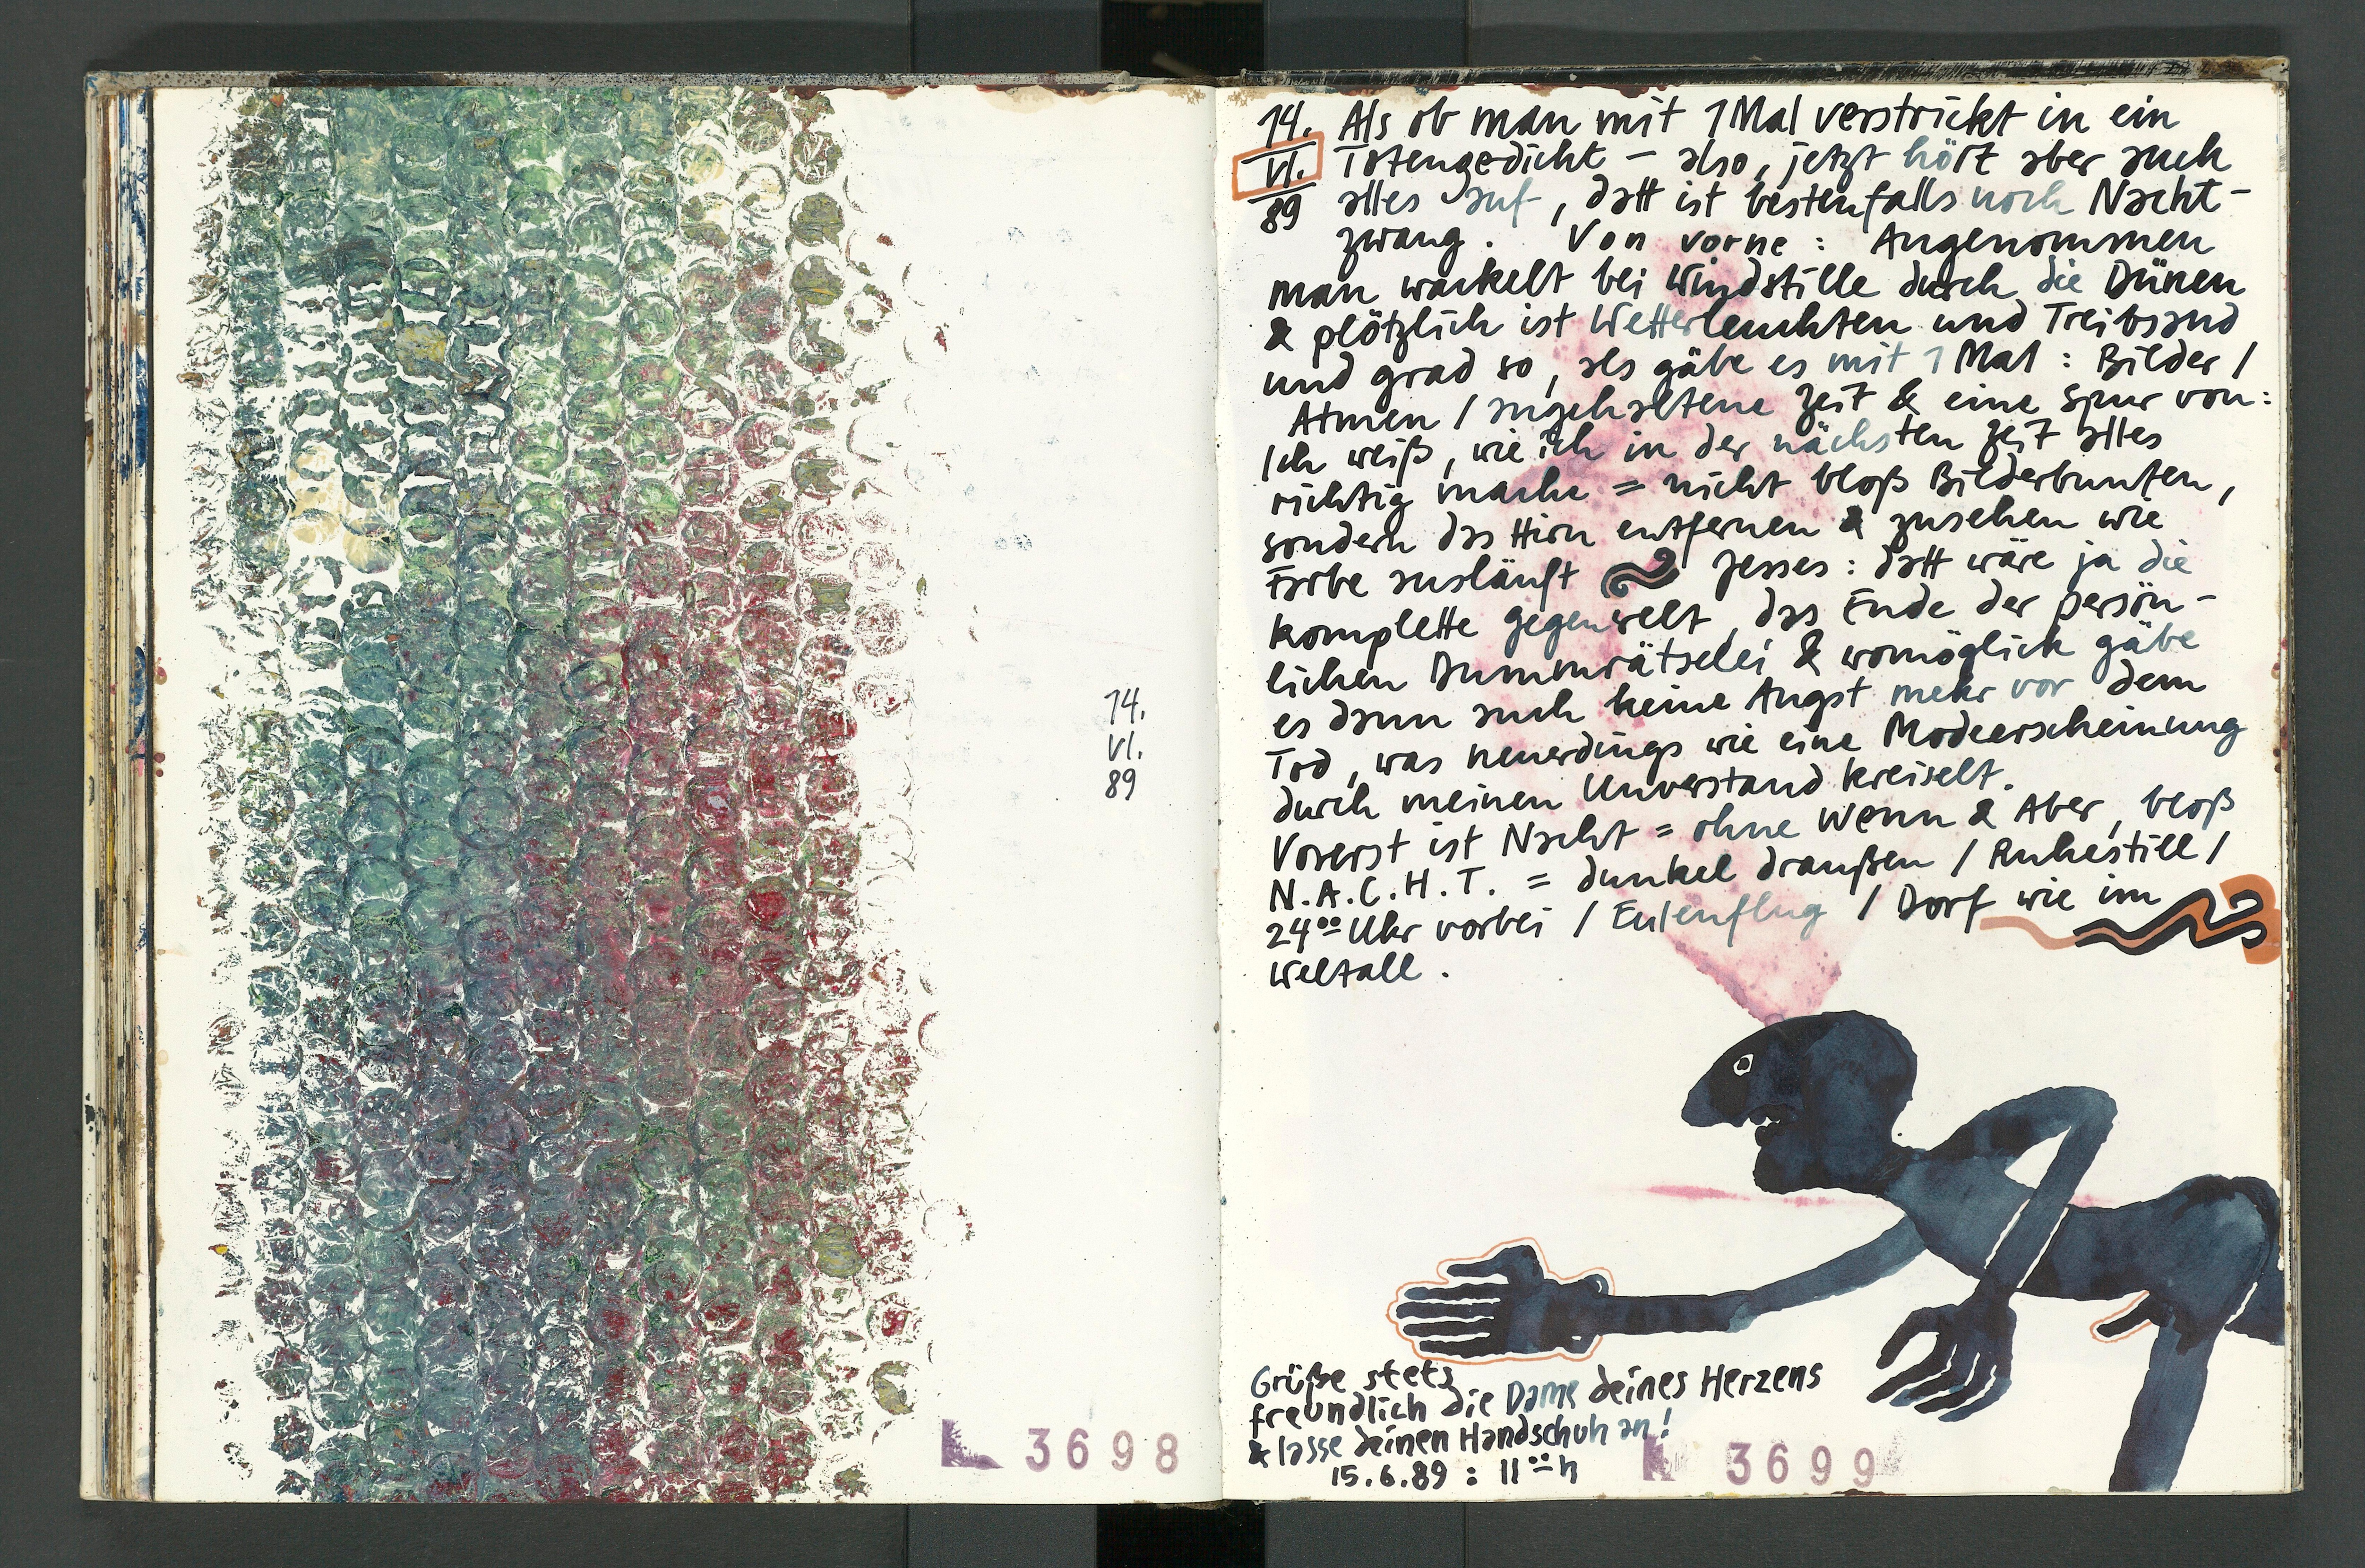 14.
VI.
89
3698
14. Als ob man mit 1 Mal verstrickt in ein
VI. Totengedicht – also, jetzt hört aber auch
89 alles auf, datt ist bestenfalls noch Nacht-
zwang. Von vorne: Angenommen
man wackelt bei Windstille durch die Dünen
& plötzlich ist Wetterleuchten und Treibsand
und grad so, als gäbe es mit 1 Mal: Bilder /
Atmen / angehaltene Zeit & eine Spur von:
Ich weiß, wie ich in der nächsten Zeit alles
richtig mache = nicht bloß Bilderbunten,
sondern das Hirn entfernen & zusehen wie
Farbe ausläuft Jesses: datt wäre ja die
komplette Gegenwelt, das Ende der persön-
lichen Dummrätselei & womöglich gäbe
es dann auch keine Angst mehr vor dem
Tod, was neuerdings wie eine Modeerscheinung
durch meinen Unverstand kreiselt.
Vorerst ist Nacht = ohne Wenn & Aber, bloß
N.A.C.H.T. = dunkel draußen / Ruhestill /
24⁰⁰ Uhr vorbei / Eulenflug / Dorf wie im
Weltall.
Grüße stets
freundlich die Dame deines Herzens
& lasse deinen Handschuh an!
15.6.89: 11⁰⁰ h
3699